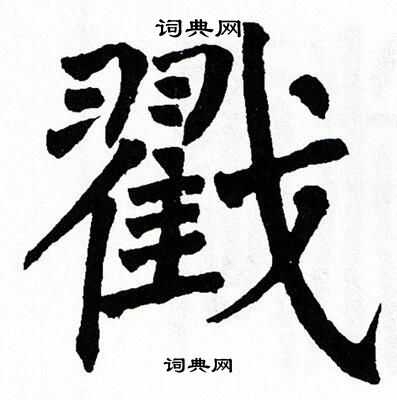 词典网
戳
词典网